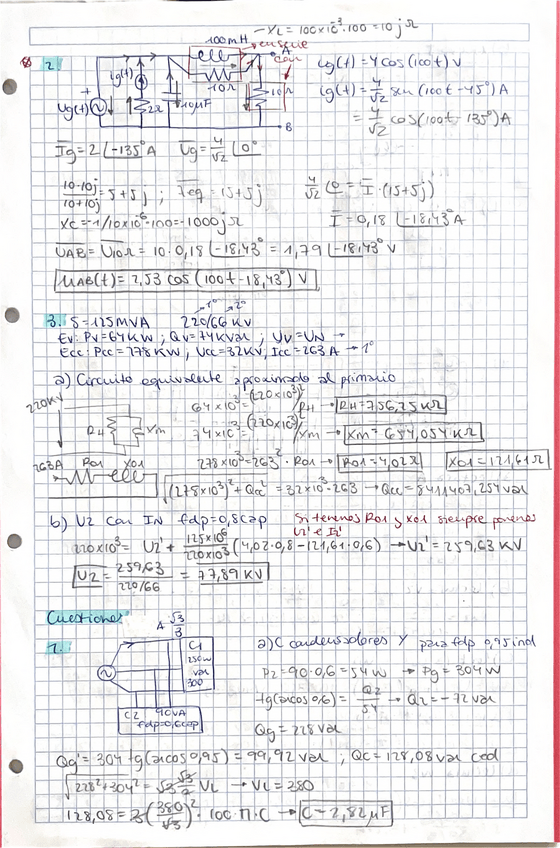 XL = 100x10^-3·100 = 10j Ω
2.
100mH
enseñe
A
con
ig(t)
Ug(t)
2Ω
10μF
10Ω
10Ω
B
ug(t) = 4 cos(100t) V
ig(t) = 4/√2 sen(100t-45°) A
= 4/√2 cos(100t-135°) A
Ig = 2 |-135° A Ug = 4/√2 |0°
10·10j/10+10j = 5+5j ; Zeq = 15+5j 4/√2 |0 = I·(15+5j)
XC = -1/10x10^-6·100 = -1000j Ω I = 0,18 |-18,43° A
UAB = U10Ω = 10·0,18 |-18,43° = 1,79 |-18,43° V
uAB(t) = 2,53 cos(100t-18,43°) V
3. S=125MVA 220/66 KV
1° 2°
Ev: Pv=64KW ; Qv=74KVar ; Uv=UN →
Ecc: Pcc=278KW, Ucc=32KV, Icc=263A → 1°
a) Circuito equivalente aproximado al primario
220KV
RH
Xm
263A
R01
X01
64x10^3 = (220x10^3)^2/RH → RH=756,25KΩ
74x10^3 = (220x10^3)^2/Xm → Xm=654,054KΩ
278x10^3 = 263^2·R01 → R01=4,02Ω X01=121,61Ω
√(278x10^3)^2+Qcc^2 = 32x10^3·263 → Qcc=8411407,254Var
b) U2 con IN fdp=0,8cap
Si tenemos R01 y X01 siempre ponemos U2' e I2'
220x10^3 = U2' + 125x10^6/220x10^3 (4,02·0,8-121,61·0,6) → U2'=259,63 KV
U2 = 259,63/220/66 = 77,89 KV
Cuestiones
1.
A √3/3
C1
250W
Var
300
C2 90VA
fdp=0,6cap
a) C condensadores Y para fdp 0,95ind
P2=90·0,6=54W → Pg=304W
tg(arcos0,6) = Q2/54 → Q2=-72Var
Qg=228Var
Qg'=304·tg(arcos0,95)=99,92Var ; QC=128,08Var ced
√228^2+304^2 = √3 √3/3 VL → VL=380
128,08 = 3(380/√3)^2·100·π·C → C=2,82μF